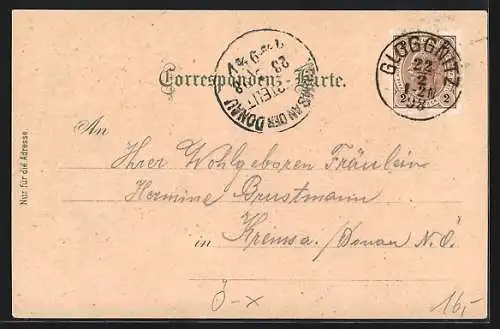 Correspondenz-Karte.
GLOGGNITZ
22
2
AN DER DONAU
23
2
An
Nur für die Adresse.
Ihrer Wohlgeboren Fräulein
Hermine Brustmann
in Krems a./Donau N.Ö.
3-x
16,-